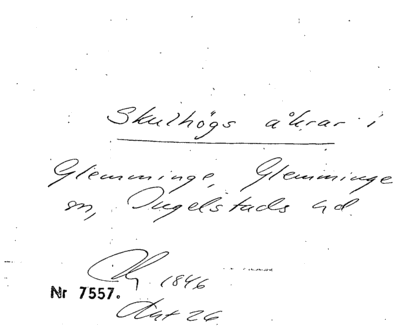 Skulhögs åkrar i
Glemminge, Glemminge
sn, Ingelstads hd.
1846
Nr 7557.
Akt 26